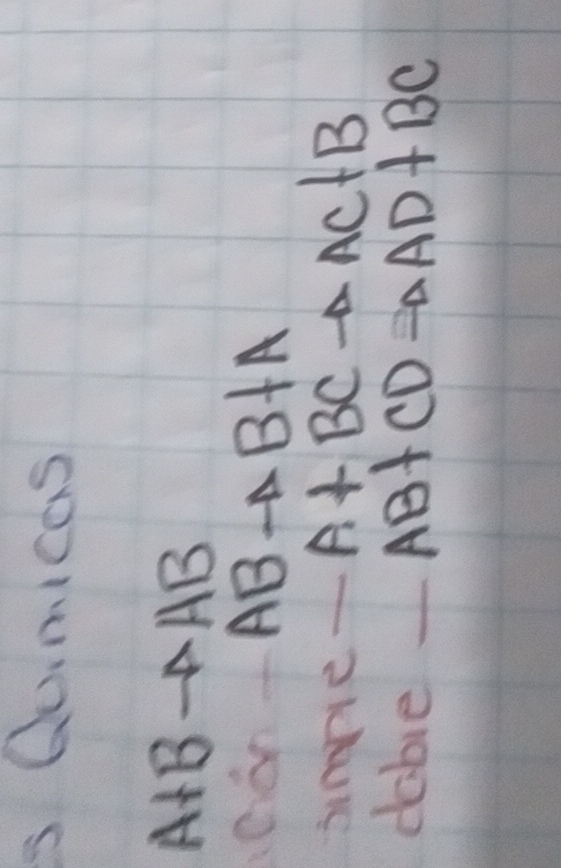 s Quimicas
A+B → AB
ción - AB → B+A
simple - A + BC → AC+B
doble - AB+CD → AD+BC